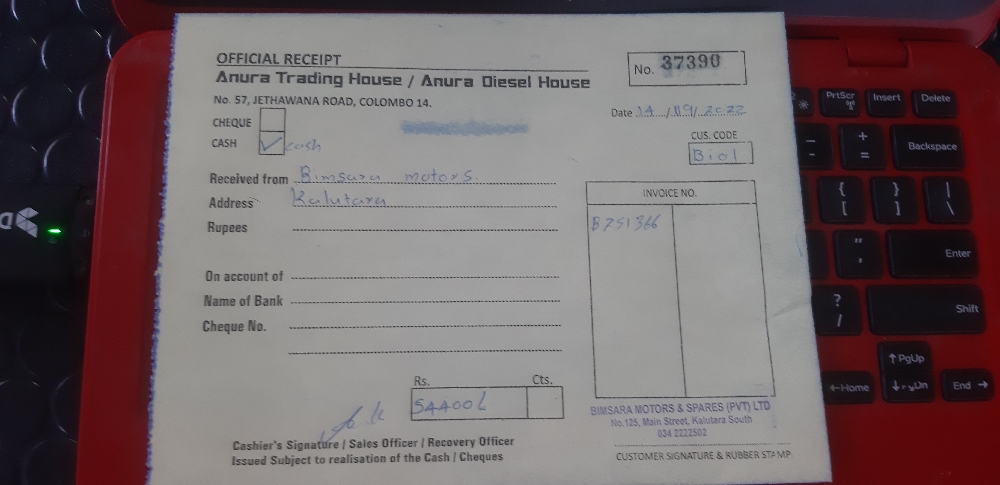 OFFICIAL RECEIPT
Anura Trading House / Anura Diesel House
No. 57, JETHAWANA ROAD, COLOMBO 14.
No. 37390
Date 14/09/2022
CHEQUE
CASH cash
CUS. CODE
Bio1
Received from Bimsara motors.
Address Kalutara
Rupees
INVOICE NO.
B751366
On account of
Name of Bank
Cheque No.
Rs. Cts.
BIMSARA MOTORS & SPARES (PVT) LTD
No.125, Main Street, Kalutara South
034 2222502
Cashier's Signature / Sales Officer / Recovery Officer
Issued Subject to realisation of the Cash / Cheques
CUSTOMER SIGNATURE & RUBBER STAMP
PrtScr
Insert
Delete
+
=
Backspace
{
[
}
]
|
\
"
'
Enter
?
/
Shift
↑ PgUp
←Home
End →